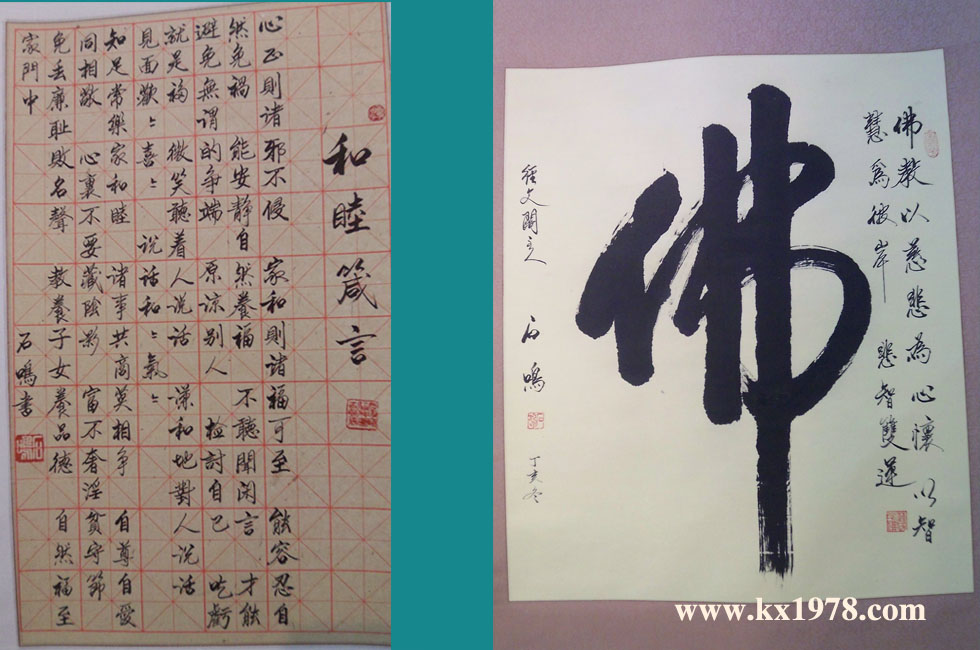 和睦箴言
心正則诸邪不侵 家和則诸福可至 能容忍自
然免禍 能安静自然養福 不聽聞闲言 才能
避免無谓的争端 原谅别人 检討自己 吃虧
就是福 微笑聽着人说话 谦和地對人说话
見面歡〻喜〻 说话和〻氣〻
知足常樂家和睦 诸事共商莫相争 自尊自愛
同相敬 心裏不要藏陰影 富不奢淫貧守節
免丢廉耻敗名聲 教養子女養品德 自然福至
家門中
石鳴書
佛教以慈悲為心懷 以智
慧爲彼岸 悲智雙運
佛
文閣主人 石鳴 丁亥冬
www.kx1978.com